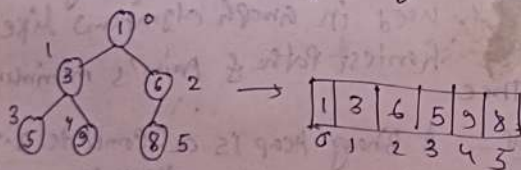 1 0
1
3 6 2
3 5 4 9 8 5
→ 1 3 6 5 9 8
0 1 2 3 4 5